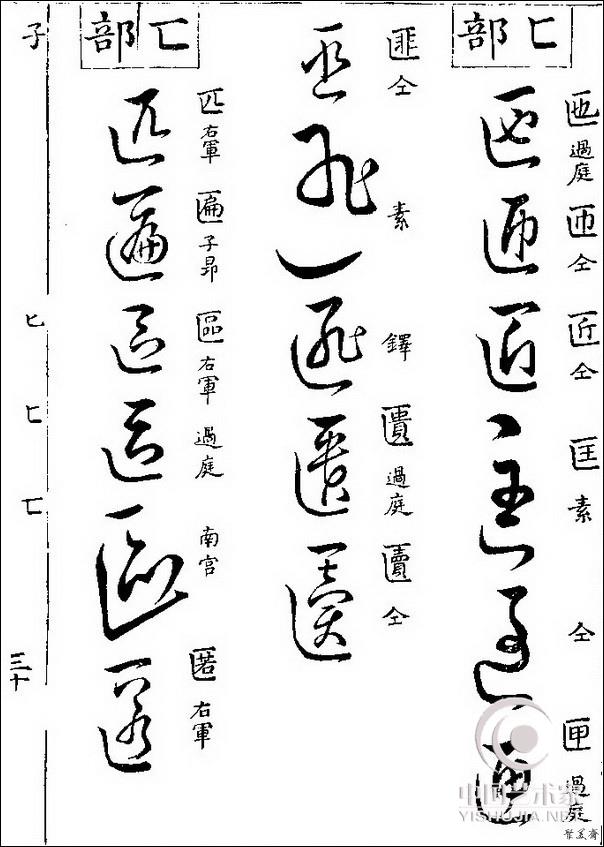 匚部
匜 過庭
匝 仝
匠 仝
匡 素
仝
匣 過庭
匪 仝
素
鐸
匱 過庭
匵 仝
匸部
匹 右軍
匾 子昂
區 右軍
過庭
南宫
匿 右軍
子
匕
匚
匸
三十
中国艺术家
YISHUJIA.NET